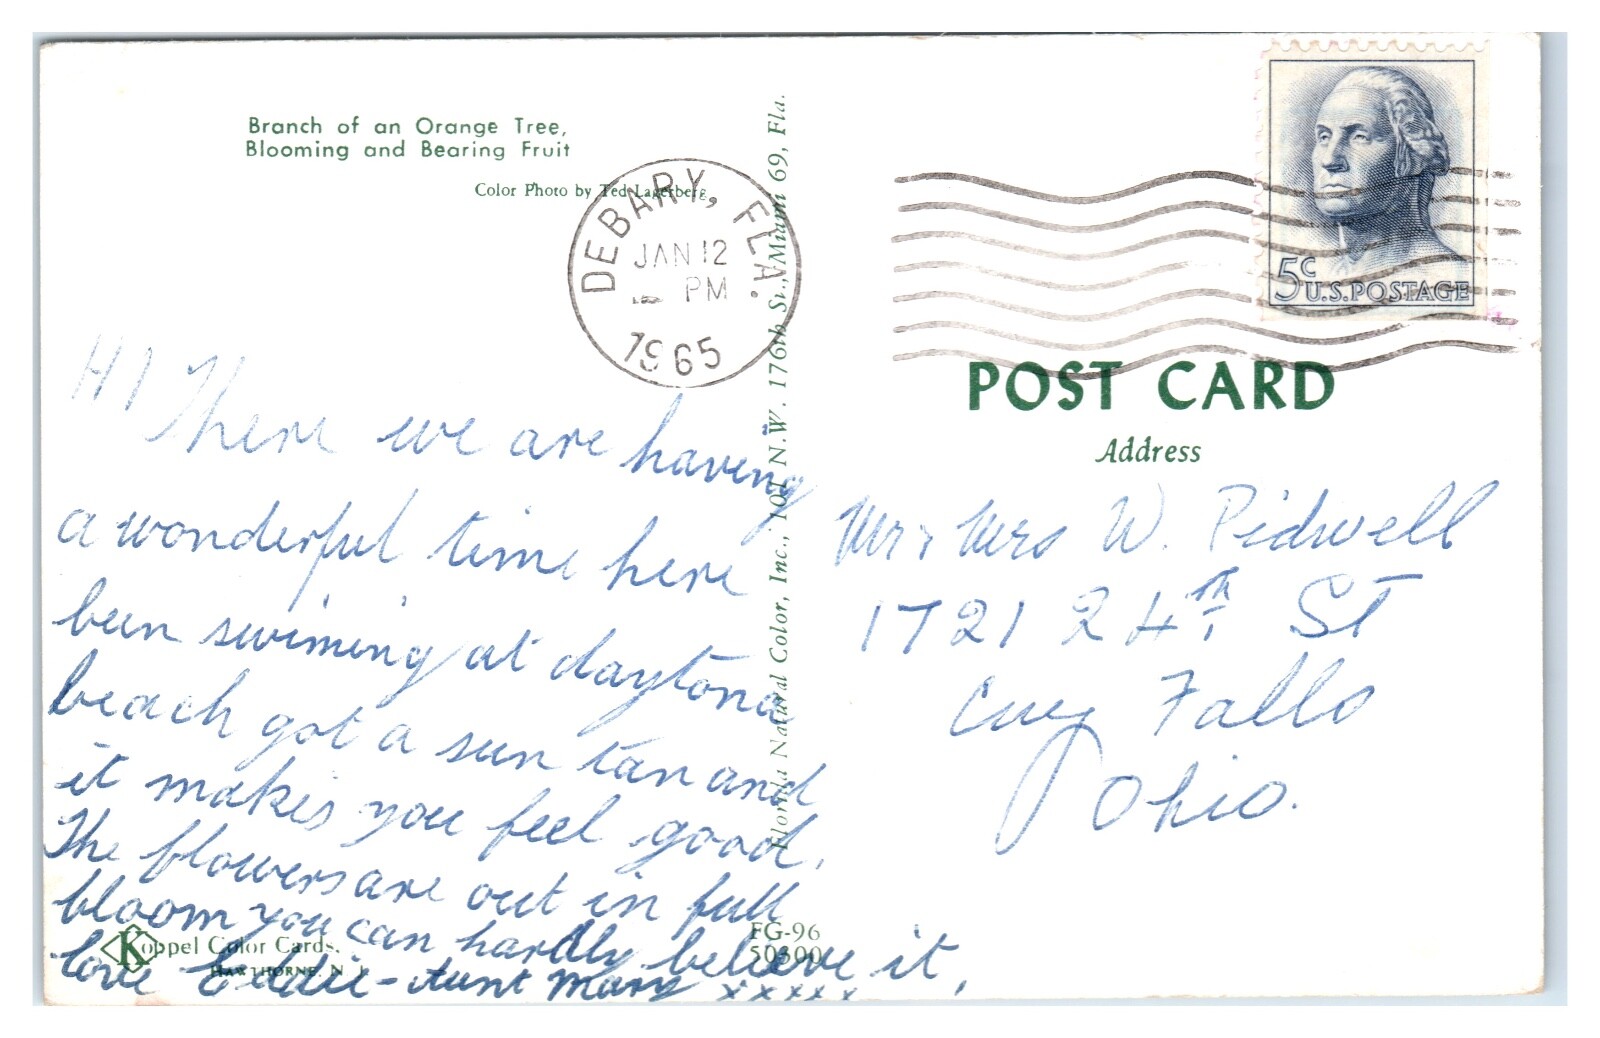 Branch of an Orange Tree,
Blooming and Bearing Fruit
Color Photo by Ted Lagerberg
DEBARY, FLA.
JAN 12
PM
1965
5c
U.S. POSTAGE
POST CARD
Address
HI There we are having
a wonderful time here
been swiming at daytona
beach got a sun tan and
it makes you feel good.
The flowers are out in full
bloom you can hardly believe it,
love Eddie - Aunt Mary xxxxx
Mr & Mrs W. Pidwell
1721 24th St
Cuy Falls
Ohio.
Florida Natural Color, Inc., 101 N.W. 176th St., Miami 69, Fla.
Koppel Color Cards,
HAWTHORNE, N. J.
FG-96
50500